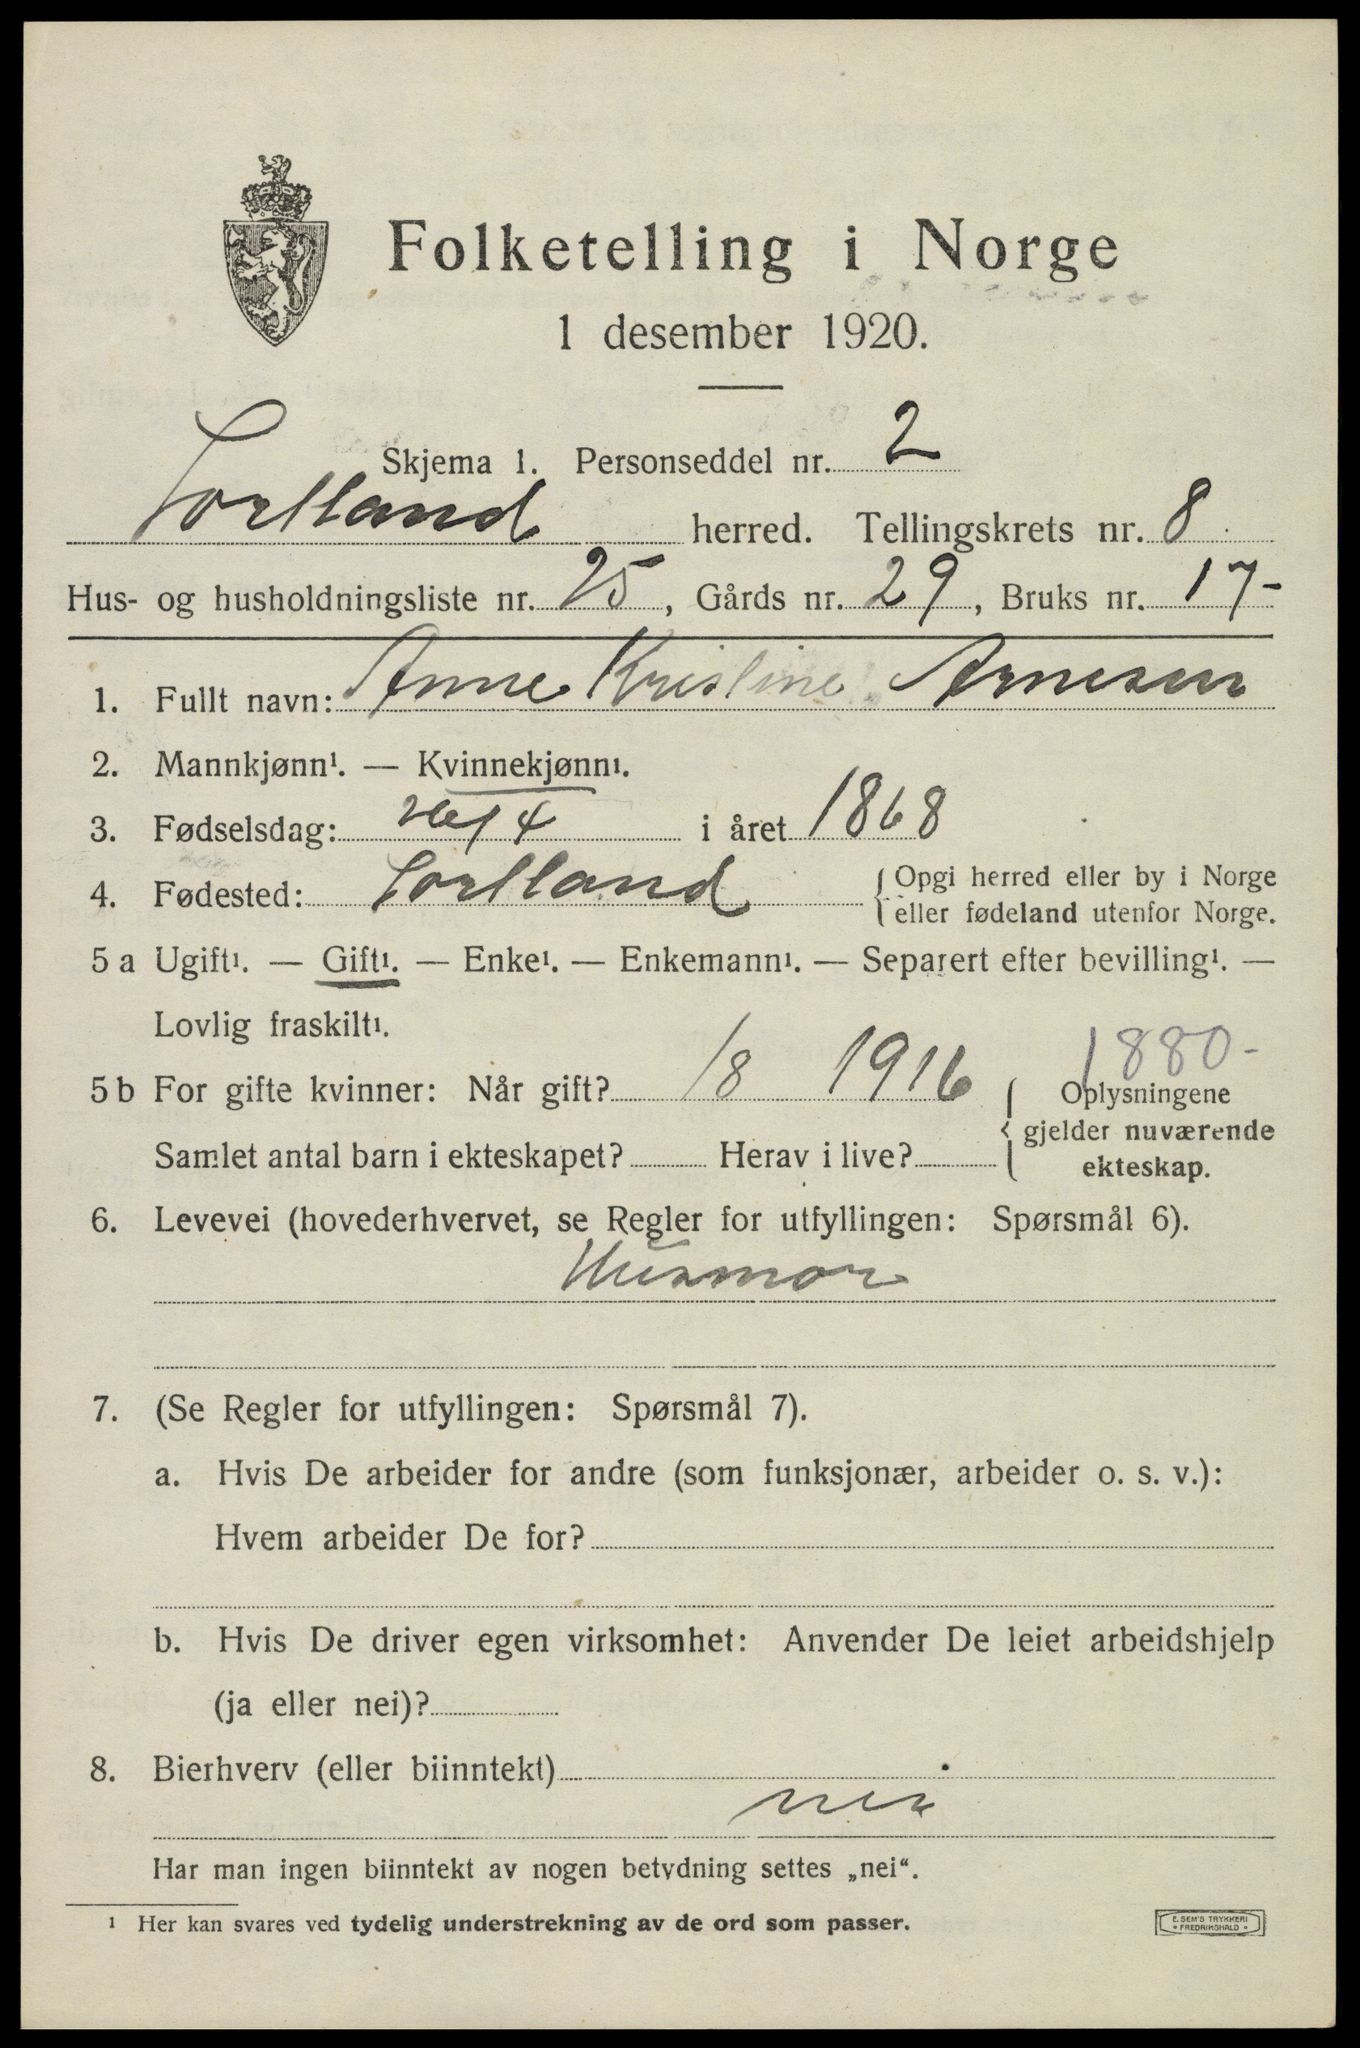 Folketelling i Norge
1 desember 1920.
Skjema 1. Personseddel nr. 2
Sortland herred. Tellingskrets nr. 8
Hus- og husholdningsliste nr. 25, Gårds nr. 29, Bruks nr. 17-
1. Fullt navn: Anne Kristine Arnesen
2. Mannkjønn¹. — Kvinnekjønn¹.
3. Fødselsdag: /4 i året 1868
4. Fødested: Sortland {Opgi herred eller by i Norge
eller fødeland utenfor Norge.
5 a Ugift¹. — Gift¹. — Enke¹. — Enkemann¹. — Separert efter bevilling¹. —
Lovlig fraskilt¹.
1880-
5 b For gifte kvinner: Når gift? /8 1916 { Oplysningene
gjelder nuværende
Samlet antal barn i ekteskapet? Herav i live? ekteskap.
6. Levevei (hovederhvervet, se Regler for utfyllingen: Spørsmål 6).
Husmor
7. (Se Regler for utfyllingen: Spørsmål 7).
a. Hvis De arbeider for andre (som funksjonær, arbeider o. s. v.):
Hvem arbeider De for?
b. Hvis De driver egen virksomhet: Anvender De leiet arbeidshjelp
(ja eller nei)?
8. Bierhverv (eller biinntekt)
nei
Har man ingen biinntekt av nogen betydning settes „nei“.
¹ Her kan svares ved tydelig understrekning av de ord som passer.
E. SEM'S TRYKKERI
* FREDRIKSHALD *